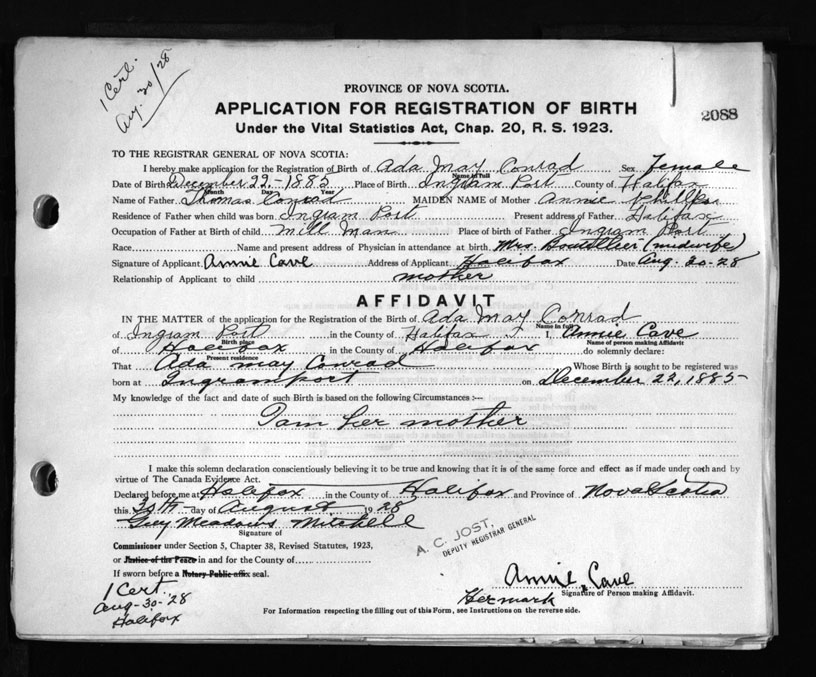 1 Cert.
Aug. 30/28
PROVINCE OF NOVA SCOTIA.
APPLICATION FOR REGISTRATION OF BIRTH
2088
Under the Vital Statistics Act, Chap. 20, R. S. 1923.
TO THE REGISTRAR GENERAL OF NOVA SCOTIA:
I hereby make application for the Registration of Birth of Ada May Conrad Sex Female
Name in Full
Date of Birth December 22,-1885 Place of Birth Ingram Port County of Halifax
Month Day Year
Name of Father Thomas Conrad MAIDEN NAME of Mother Annie
Residence of Father when child was born Ingram Port Present address of Father Halifax
Occupation of Father at Birth of child Mill Man Place of birth of Father Ingram Port
Race Name and present address of Physician in attendance at birth Mrs. Boutillier (midwife)
Signature of Applicant Annie Cave Address of Applicant Halifax Date Aug. 30-28
Relationship of Applicant to child mother
AFFIDAVIT
IN THE MATTER of the application for the Registration of the Birth of Ada May Conrad
Name in full
of Ingram Port in the County of Halifax I, Annie Cave
Birth place Name of person making Affidavit
of Halifax in the County of Halifax do solemnly declare:
Present residence
That Ada May Conrad Whose Birth is sought to be registered was
born at Ingramport on December 22, 1885
My knowledge of the fact and date of such Birth is based on the following Circumstances :—
I am her mother
I make this solemn declaration conscientiously believing it to be true and knowing that it is of the same force and effect as if made under oath and by
virtue of The Canada Evidence Act.
Declared before me at Halifax in the County of Halifax and Province of Nova Scotia
this 30th day of August 1928
Guy Meadows Mitchell
Signature of
A. C. JOST.
DEPUTY REGISTRAR GENERAL
Commissioner under Section 5, Chapter 38, Revised Statutes, 1923,
or Justice of the Peace in and for the County of
If sworn before a Notary Public affix seal.
Annie Cave
Her mark
Signature of Person making Affidavit.
1 Cert.
Aug-30-28
Halifax
For Information respecting the filling out of this Form, see Instructions on the reverse side.